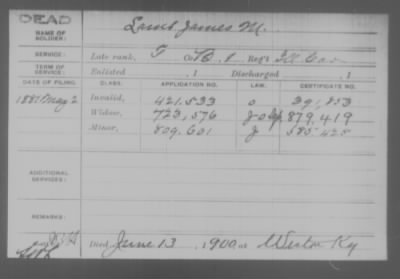 DEAD
NAME OF SOLDIER: Lamb James M.
SERVICE: Late rank, Co. B, 1 Reg't Ill Cav
TERM OF SERVICE: Enlisted , 1 Discharged , 1
DATE OF FILING. CLASS. APPLICATION NO. LAW. CERTIFICATE NO.
1881 May 2 Invalid, 421.533
Widow, 723,576 879.419
Minor, 809.601 585.428
ADDITIONAL SERVICES:
REMARKS:
Died June 13, 1900, at Weston Ky